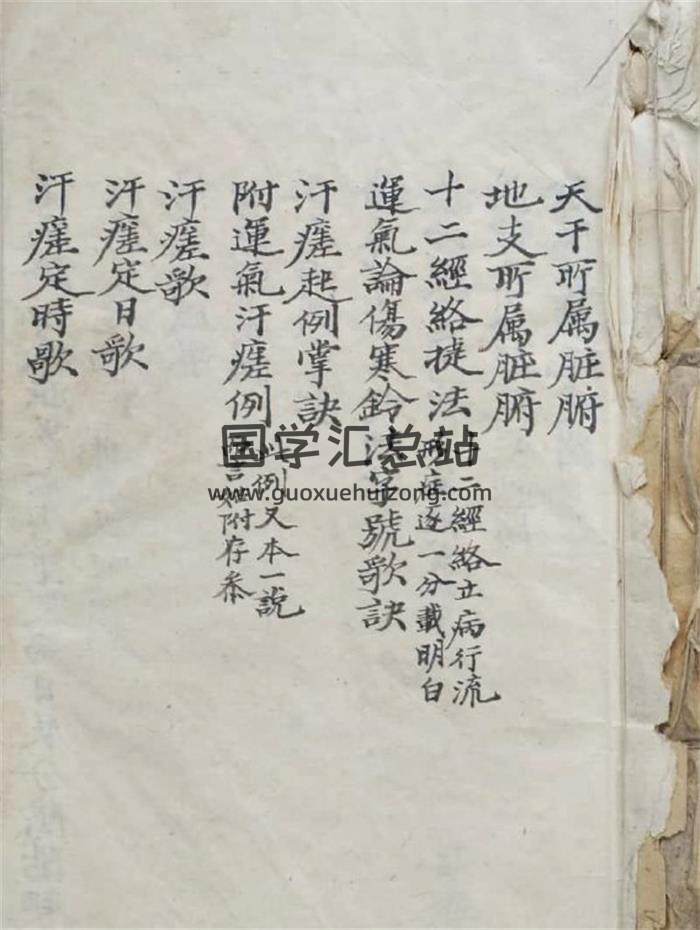 天干所属脏腑
地支所属脏腑
十二經絡捷法
十二經絡立病行流
症逐一分載明白
運氣論傷寒鈴法字號歌訣
汗瘥起例掌訣
附運氣汗瘥例
此例又本一說
附存叅
汗瘥歌
汗瘥定日歌
汗瘥定時歌
国学汇总站
www.guoxuehuizong.com